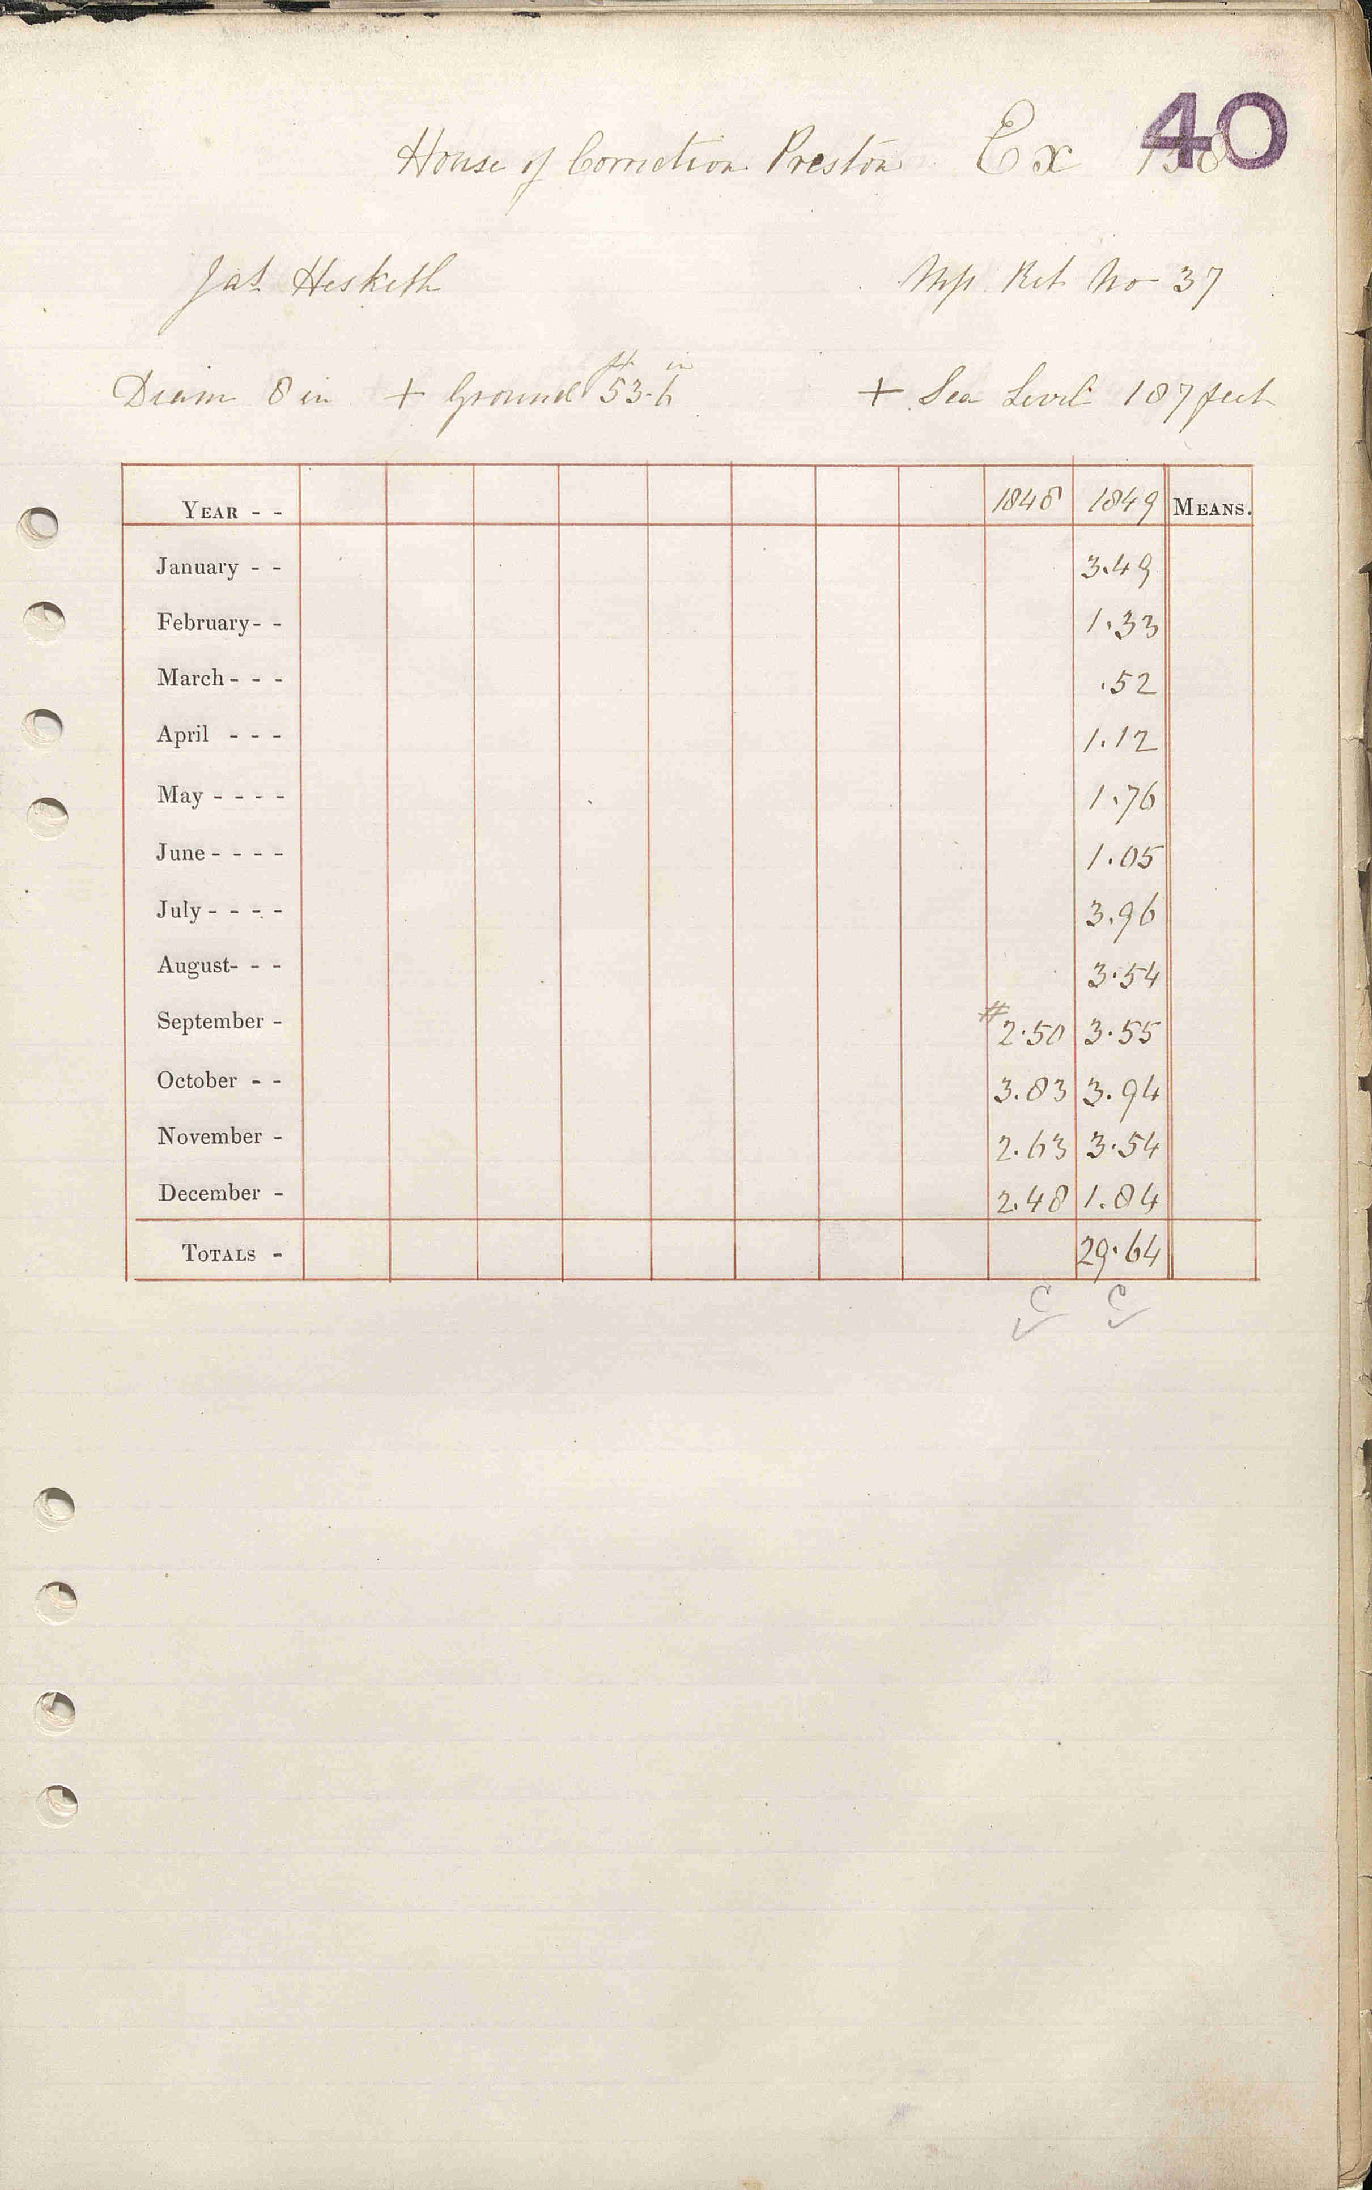 40
House of Correction Preston Ex
Jas. Hesketh No 37
Diam 8 in + Ground 53 ft 6 in + Sea Level 187 feet
YEAR - - 1848 1849 MEANS.
January - - 3.49
February - - 1.33
March - - - .52
April - - - 1.12
May - - - - 1.76
June - - - - 1.05
July - - - - 3.96
August - - - 3.54
September - # 2.50 3.55
October - - 3.83 3.94
November - 2.63 3.54
December - 2.48 1.84
TOTALS - 29.64
C C